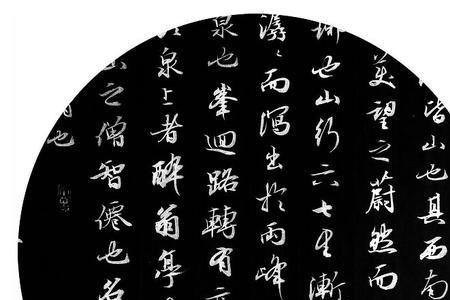 皆山也其西南
美望之蔚然而
琊也山行六七里漸
潺々而瀉出於兩峰
泉也峯迴路轉有
泉上者醉翁亭
山之僧智僊也名
也